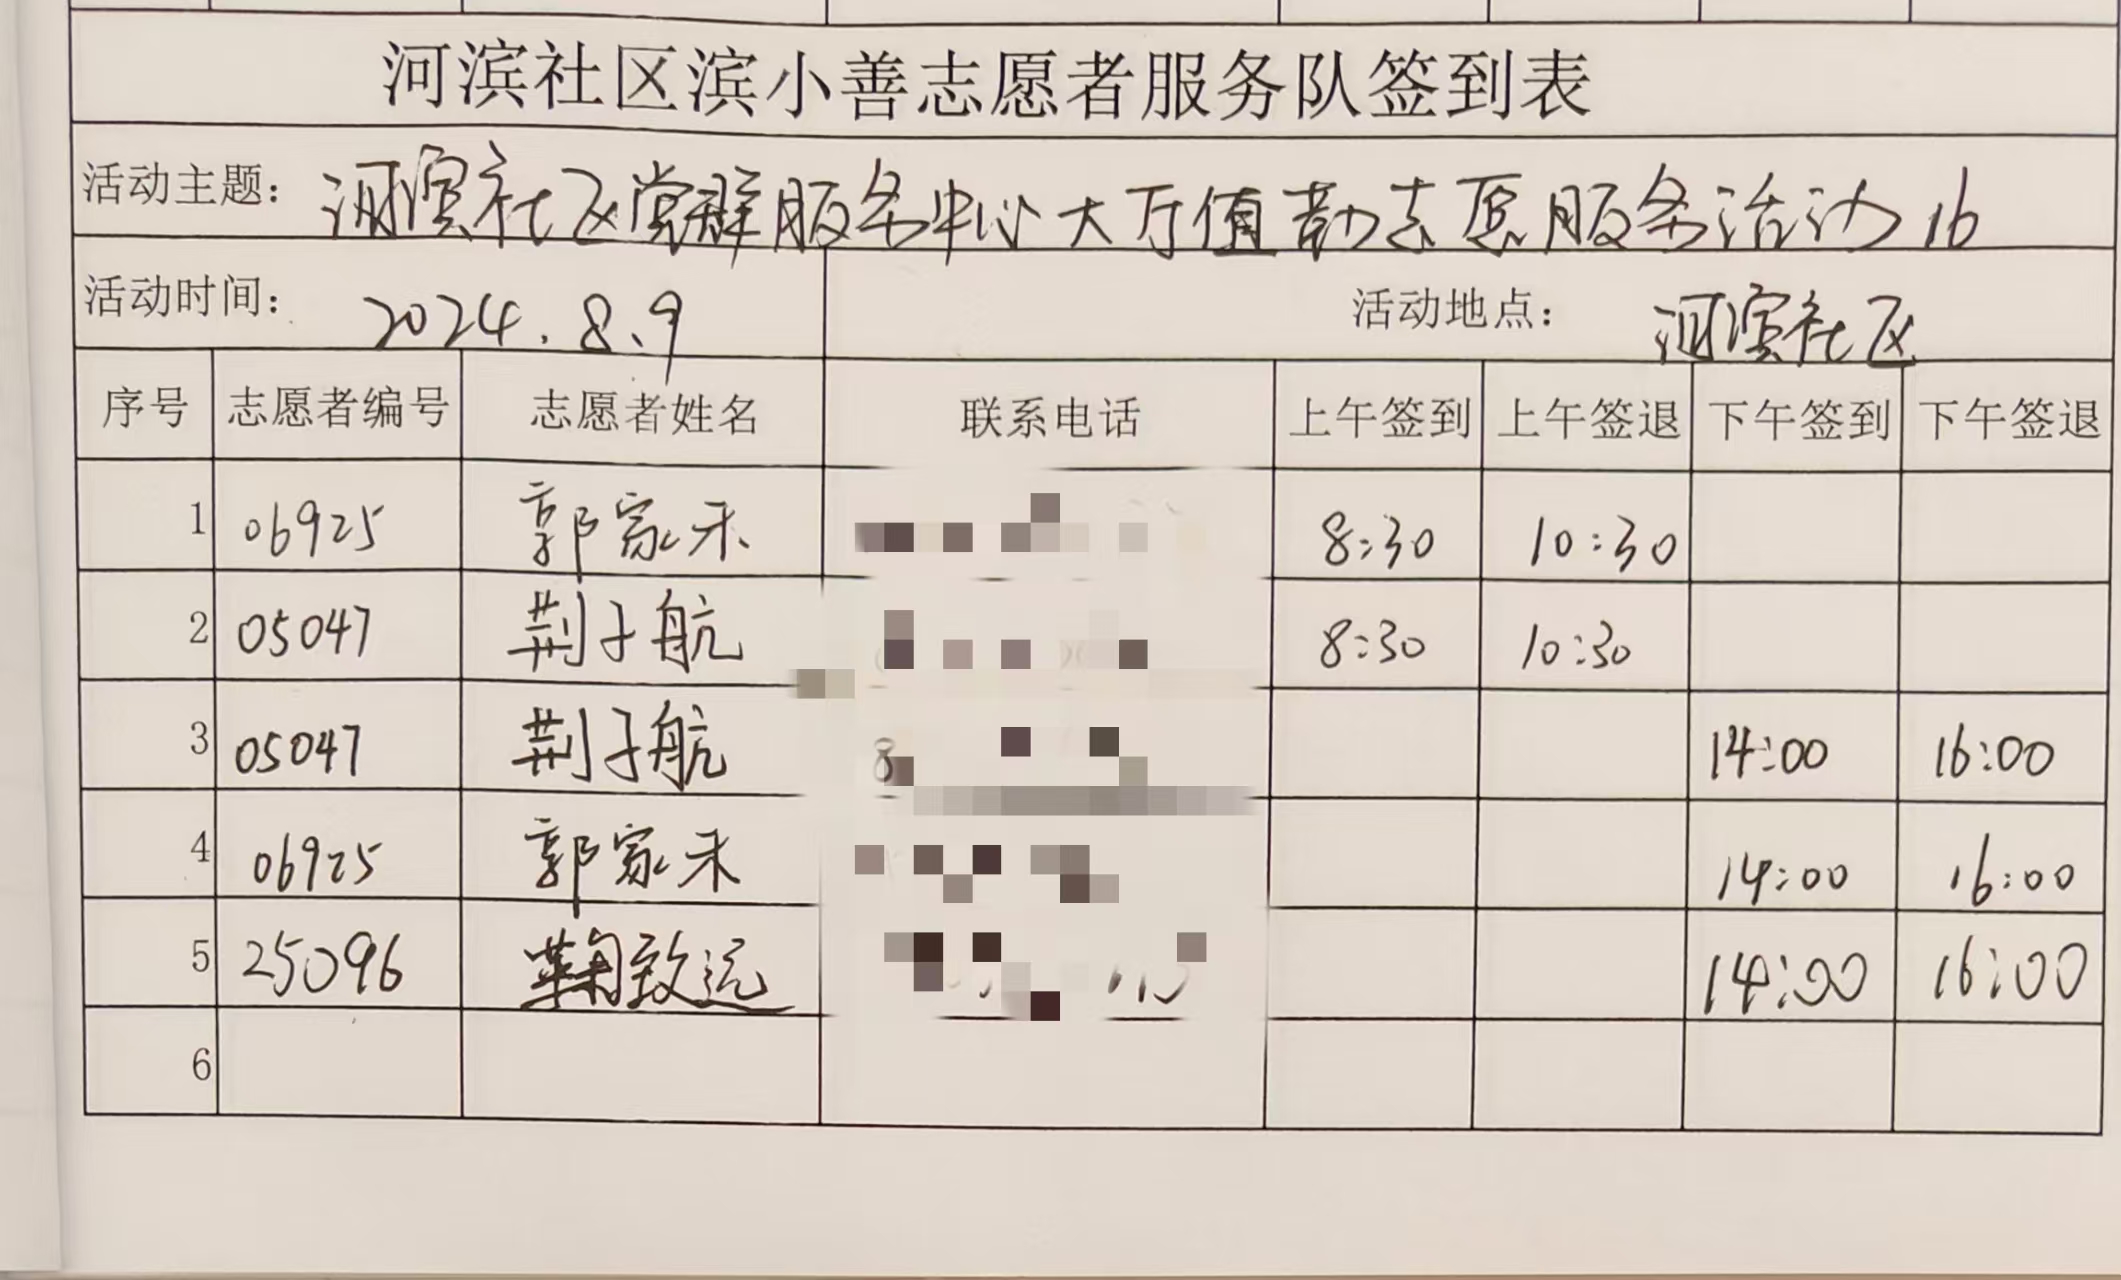 河滨社区滨小善志愿者服务队签到表
活动主题: 河滨社区党群服务中心大厅值勤志愿服务活动16
活动时间: 2024.8.9 活动地点: 河滨社区
序号 志愿者编号 志愿者姓名 联系电话 上午签到 上午签退 下午签到 下午签退
1 06925 郭家禾 8:30 10:30
2 05047 荆子航 8:30 10:30
3 05047 荆子航 8 14:00 16:00
4 06925 郭家禾 14:00 16:00
5 25096 鞠致远 14:00 16:00
6